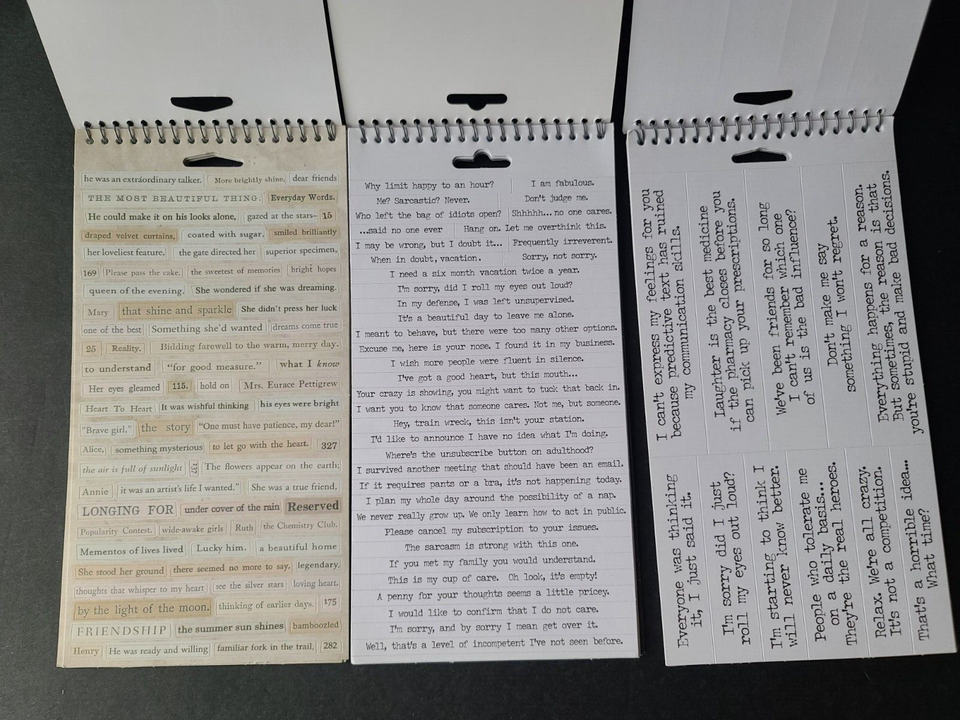 he was an extraordinary talker. More brightly shine, dear friends
THE MOST BEAUTIFUL THING. Everyday Words.
He could make it on his looks alone, gazed at the stars— 15
draped velvet curtains, coated with sugar, smiled brilliantly
her loveliest feature. the gate directed her superior specimen,
169 Please pass the cake. the sweetest of memories bright hopes
queen of the evening. She wondered if she was dreaming.
Mary that shine and sparkle She didn't press her luck
one of the best Something she'd wanted dreams come true
25 Reality. Bidding farewell to the warm, merry day.
to understand "for good measure." what I know
Her eyes gleamed 115. hold on Mrs. Eurace Pettigrew
Heart To Heart It was wishful thinking his eyes were bright
"Brave girl," the story "One must have patience, my dear!"
Alice, something mysterious to let go with the heart. 327
the air is full of sunlight The flowers appear on the earth;
Annie it was an artist's life I wanted." She was a true friend,
LONGING FOR under cover of the rain Reserved
Popularity Contest. wide-awake girls Ruth the Chemistry Club.
Mementos of lives lived Lucky him. a beautiful home
She stood her ground there seemed no more to say. legendary.
thoughts that whisper to my heart see the silver stars loving heart.
by the light of the moon. thinking of earlier days. 175
FRIENDSHIP the summer sun shines bamboozled
Henry He was ready and willing familiar fork in the trail, 282
Why limit happy to an hour? I am fabulous.
Me? Sarcastic? Never. Don't judge me.
Who left the bag of idiots open? Shhhhh... no one cares.
...said no one ever Hang on. Let me overthink this.
I may be wrong, but I doubt it... Frequently irreverent.
When in doubt, vacation. Sorry, not sorry.
I need a six month vacation twice a year.
I'm sorry, did I roll my eyes out loud?
In my defense, I was left unsupervised.
It's a beautiful day to leave me alone.
I meant to behave, but there were too many other options.
Excuse me, here is your nose. I found it in my business.
I wish more people were fluent in silence.
I've got a good heart, but this mouth...
Your crazy is showing, you might want to tuck that back in.
I want you to know that someone cares. Not me, but someone.
Hey, train wreck, this isn't your station.
I'd like to announce I have no idea what I'm doing.
Where's the unsubscribe button on adulthood?
I survived another meeting that should have been an email.
If it requires pants or a bra, it's not happening today.
I plan my whole day around the possibility of a nap.
We never really grow up. We only learn how to act in public.
Please cancel my subscription to your issues.
The sarcasm is strong with this one.
If you met my family you would understand.
This is my cup of care. Oh look, it's empty!
A penny for your thoughts seems a little pricey.
I would like to confirm that I do not care.
I'm sorry, and by sorry I mean get over it.
Well, that's a level of incompetent I've not seen before.
I can't express my feelings for you
because predictive text has ruined
my communication skills.
Laughter is the best medicine
if the pharmacy closes before you
can pick up your prescriptions.
We've been friends for so long
I can't remember which one
of us is the bad influence?
Don't make me say
something I won't regret.
Everything happens for a reason.
But sometimes, the reason is that
you're stupid and make bad decisions.
Everyone was thinking
it, I just said it.
I'm sorry did I just
roll my eyes out loud?
I'm starting to think I
will never know better.
People who tolerate me
on a daily basis...
They're the real heroes.
Relax. We're all crazy.
It's not a competition.
That's a horrible idea...
What time?